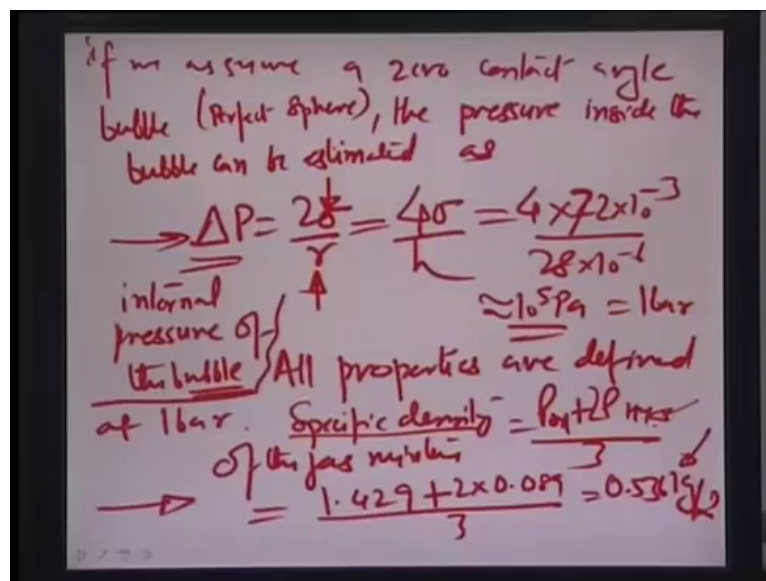 if we assume a zero contact angle
bubble (Perfect Sphere), the pressure inside the
bubble can be estimated as
→ ΔP = 2σ/r = 4σ/h = 4×72×10⁻³/28×10⁻⁶
≈10⁵Pa = 1bar
internal
pressure of
the bubble
All properties are defined
at 1bar. Specific density = +2ρ /3
of the gas mixture
→ = 1.429+2×0.089/3 = 0.536